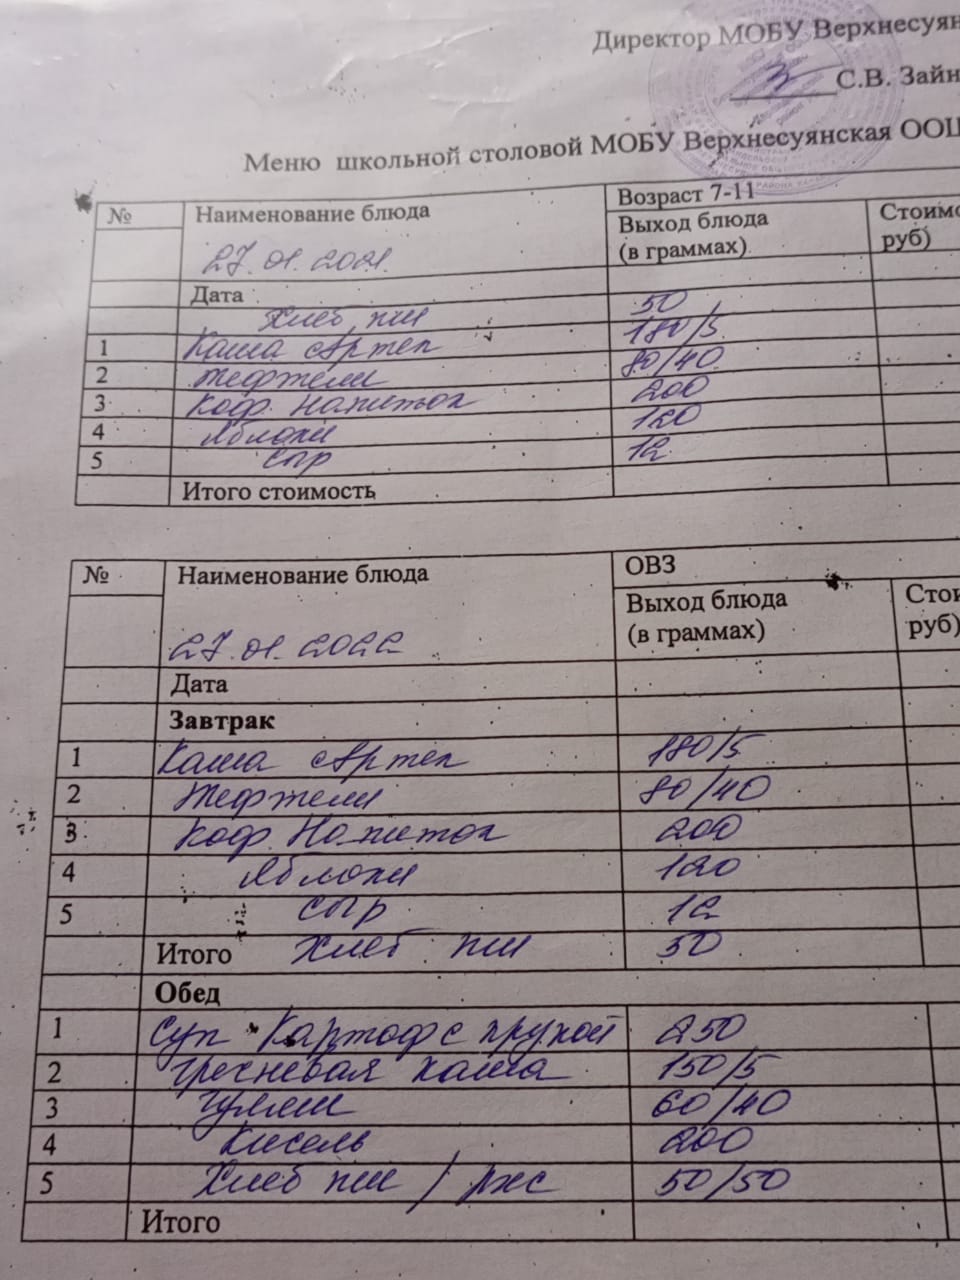 Директор МОБУ Верхнесуян
С.В. Зайн
Меню школьной столовой МОБУ Верхнесуянская ООШ
№ Наименование блюда Возраст 7-11
Выход блюда (в граммах) Стоимо руб)
27.01.2021
Дата
Хлеб пш 50
1 Каша Артек 180/5
2 Тефтели 80/40
3 Коф. Напиток 200
4 Яблоки 120
5 Сыр 12
Итого стоимость
№ Наименование блюда ОВЗ
Выход блюда (в граммах) Стои руб)
27.01.2022
Дата
Завтрак
1 Каша Артек 180/5
2 Тефтели 80/40
3 Коф. Напиток 200
4 Яблоки 120
5 Сыр 12
Итого Хлеб пш 50
Обед
1 Суп Картоф с крупой 250
2 Гречневая каша 150/5
3 Гуляш 60/40
4 Кисель 200
5 Хлеб пш / ржс 50/50
Итого